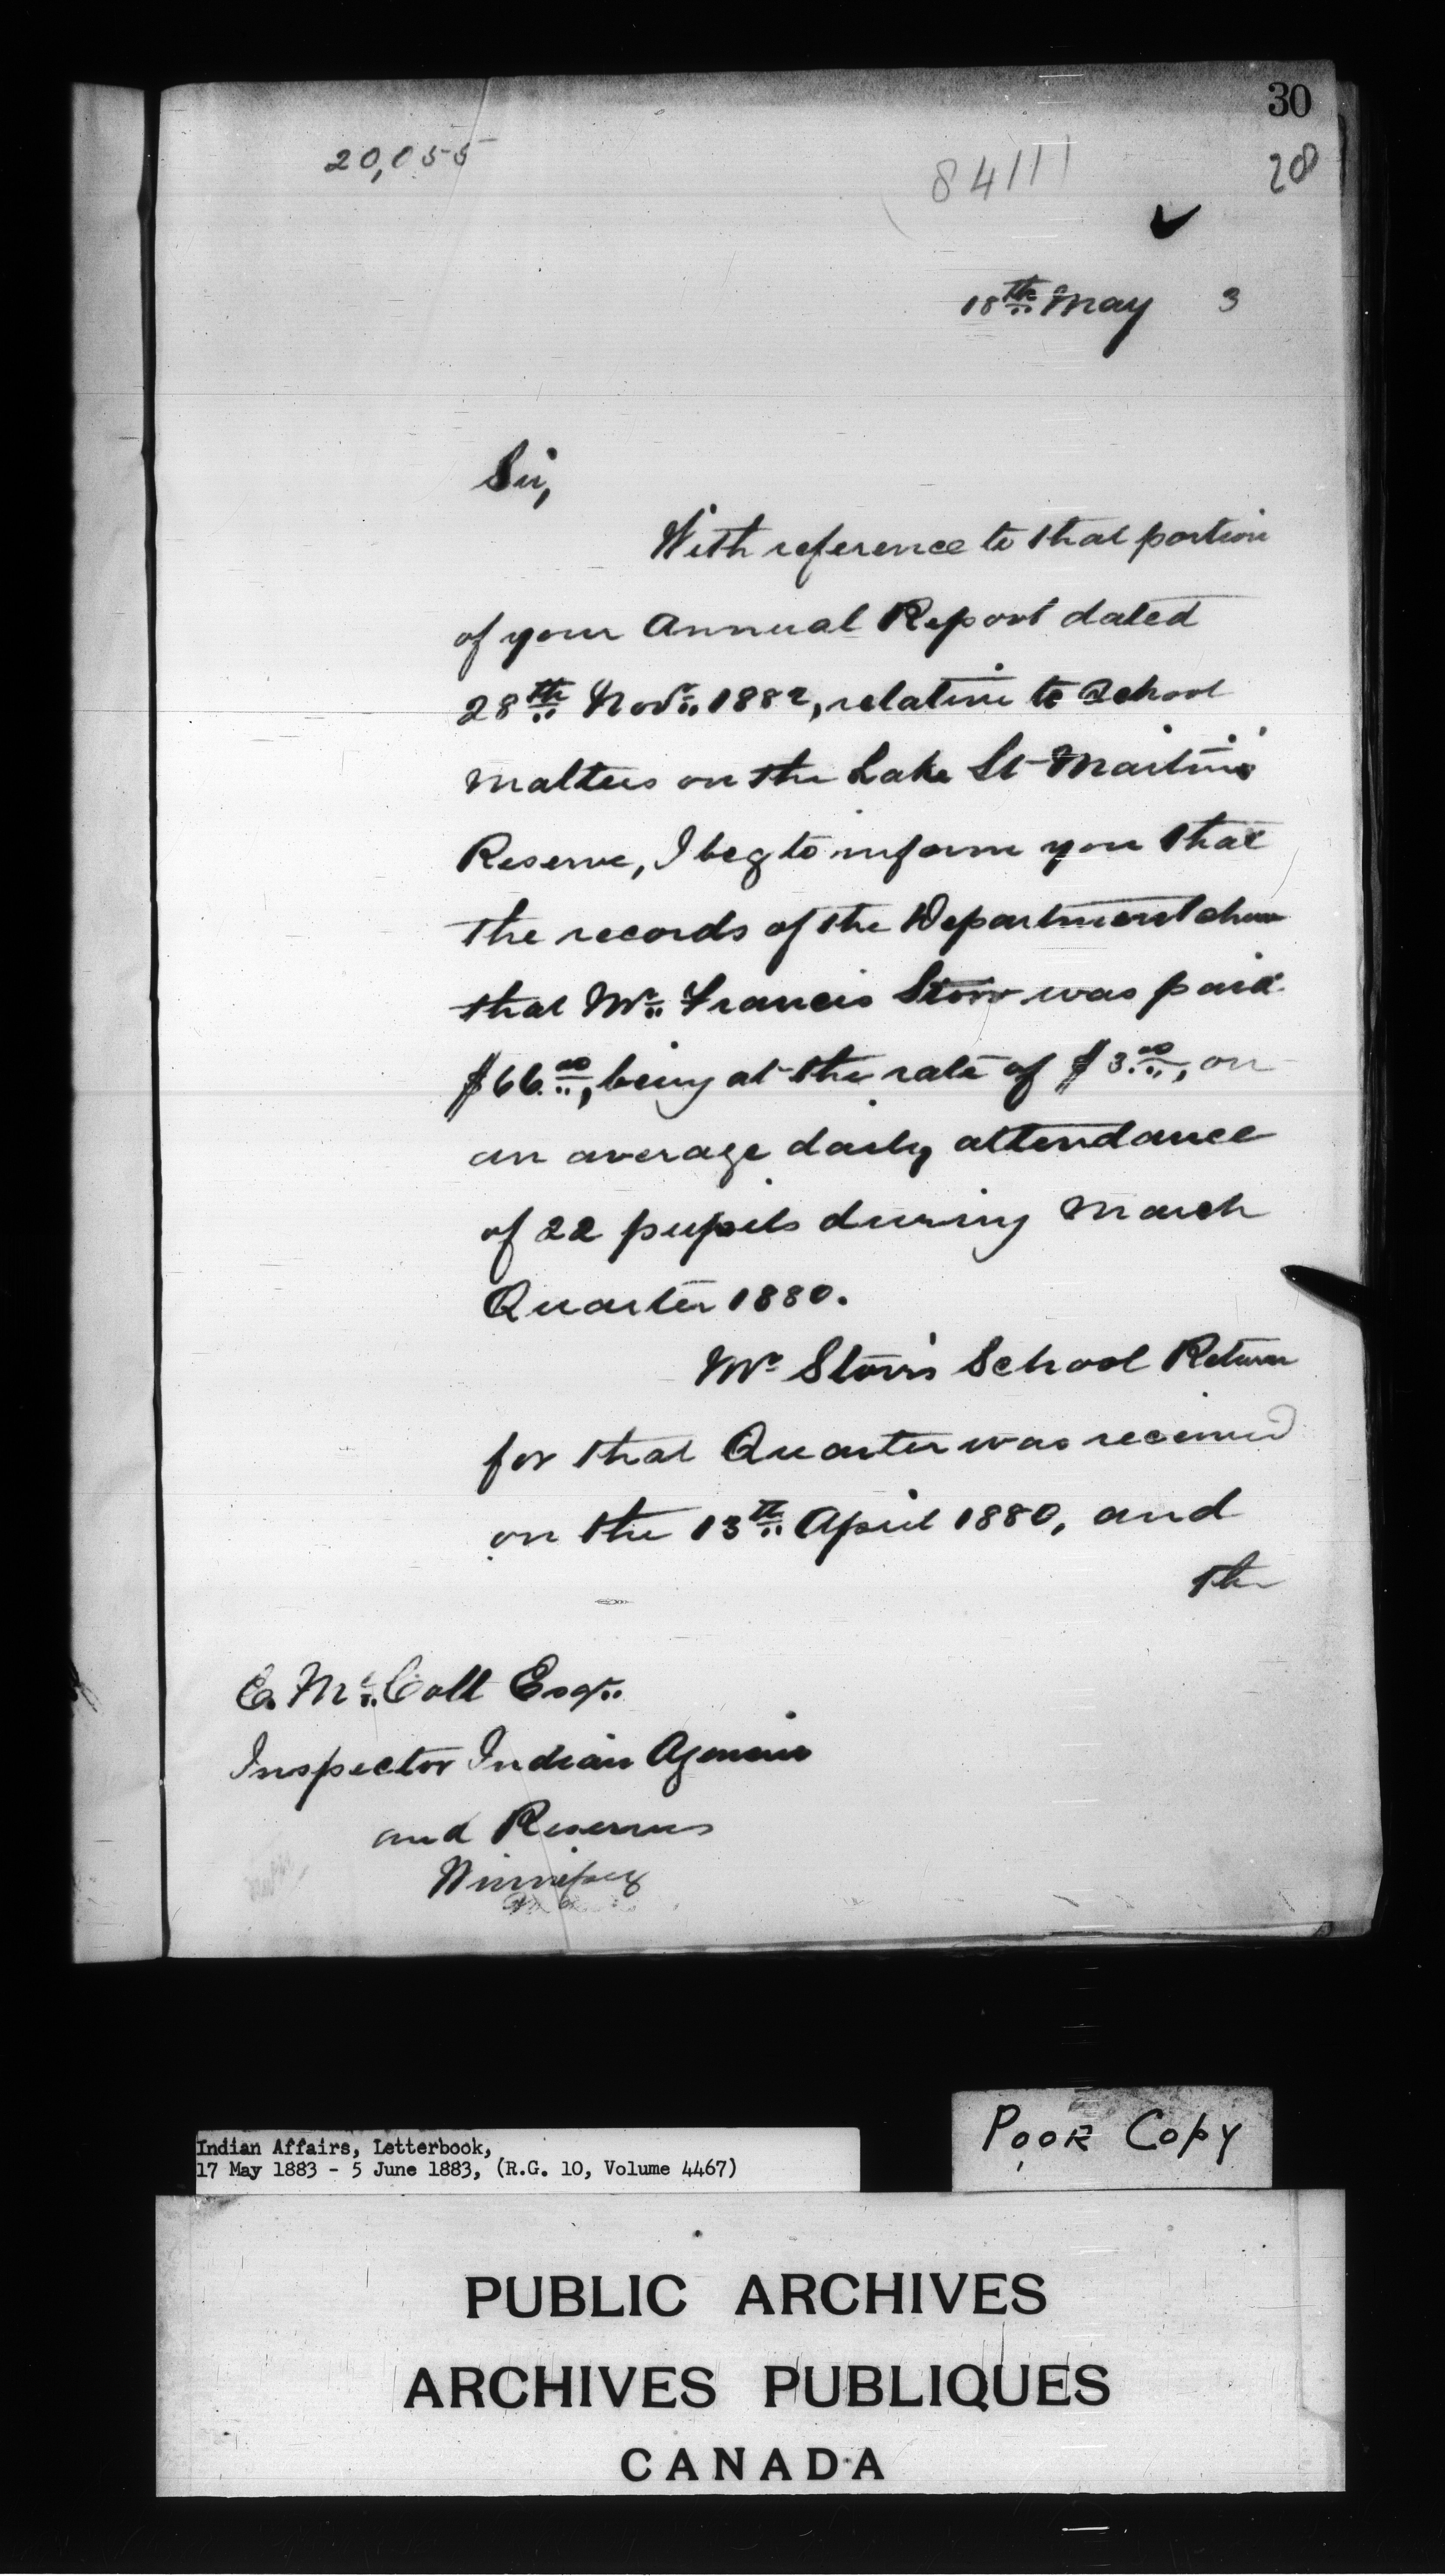 30
20,055
84111
20
18th May 3
Sir,
With reference to that portion
of your Annual Report dated
28th Novr. 1882, relative to School
matters on the Lake St Martin's
Reserve, I beg to inform you that
the records of the Department show
that Mr. Francis Storr was paid
$66.00, being at the rate of $3.00, on
an average daily attendance
of 22 pupils during March
Quarter 1880.
Mr Storr's School Return
for that Quarter was received
on the 13th April 1880, and
the
E. Mc.Coll Esqr.
Inspector Indian Agencies
and Reserves
Winnipeg
Indian Affairs, Letterbook,
17 May 1883 - 5 June 1883, (R.G. 10, Volume 4467)
POOR COPY
PUBLIC ARCHIVES
ARCHIVES PUBLIQUES
CANADA